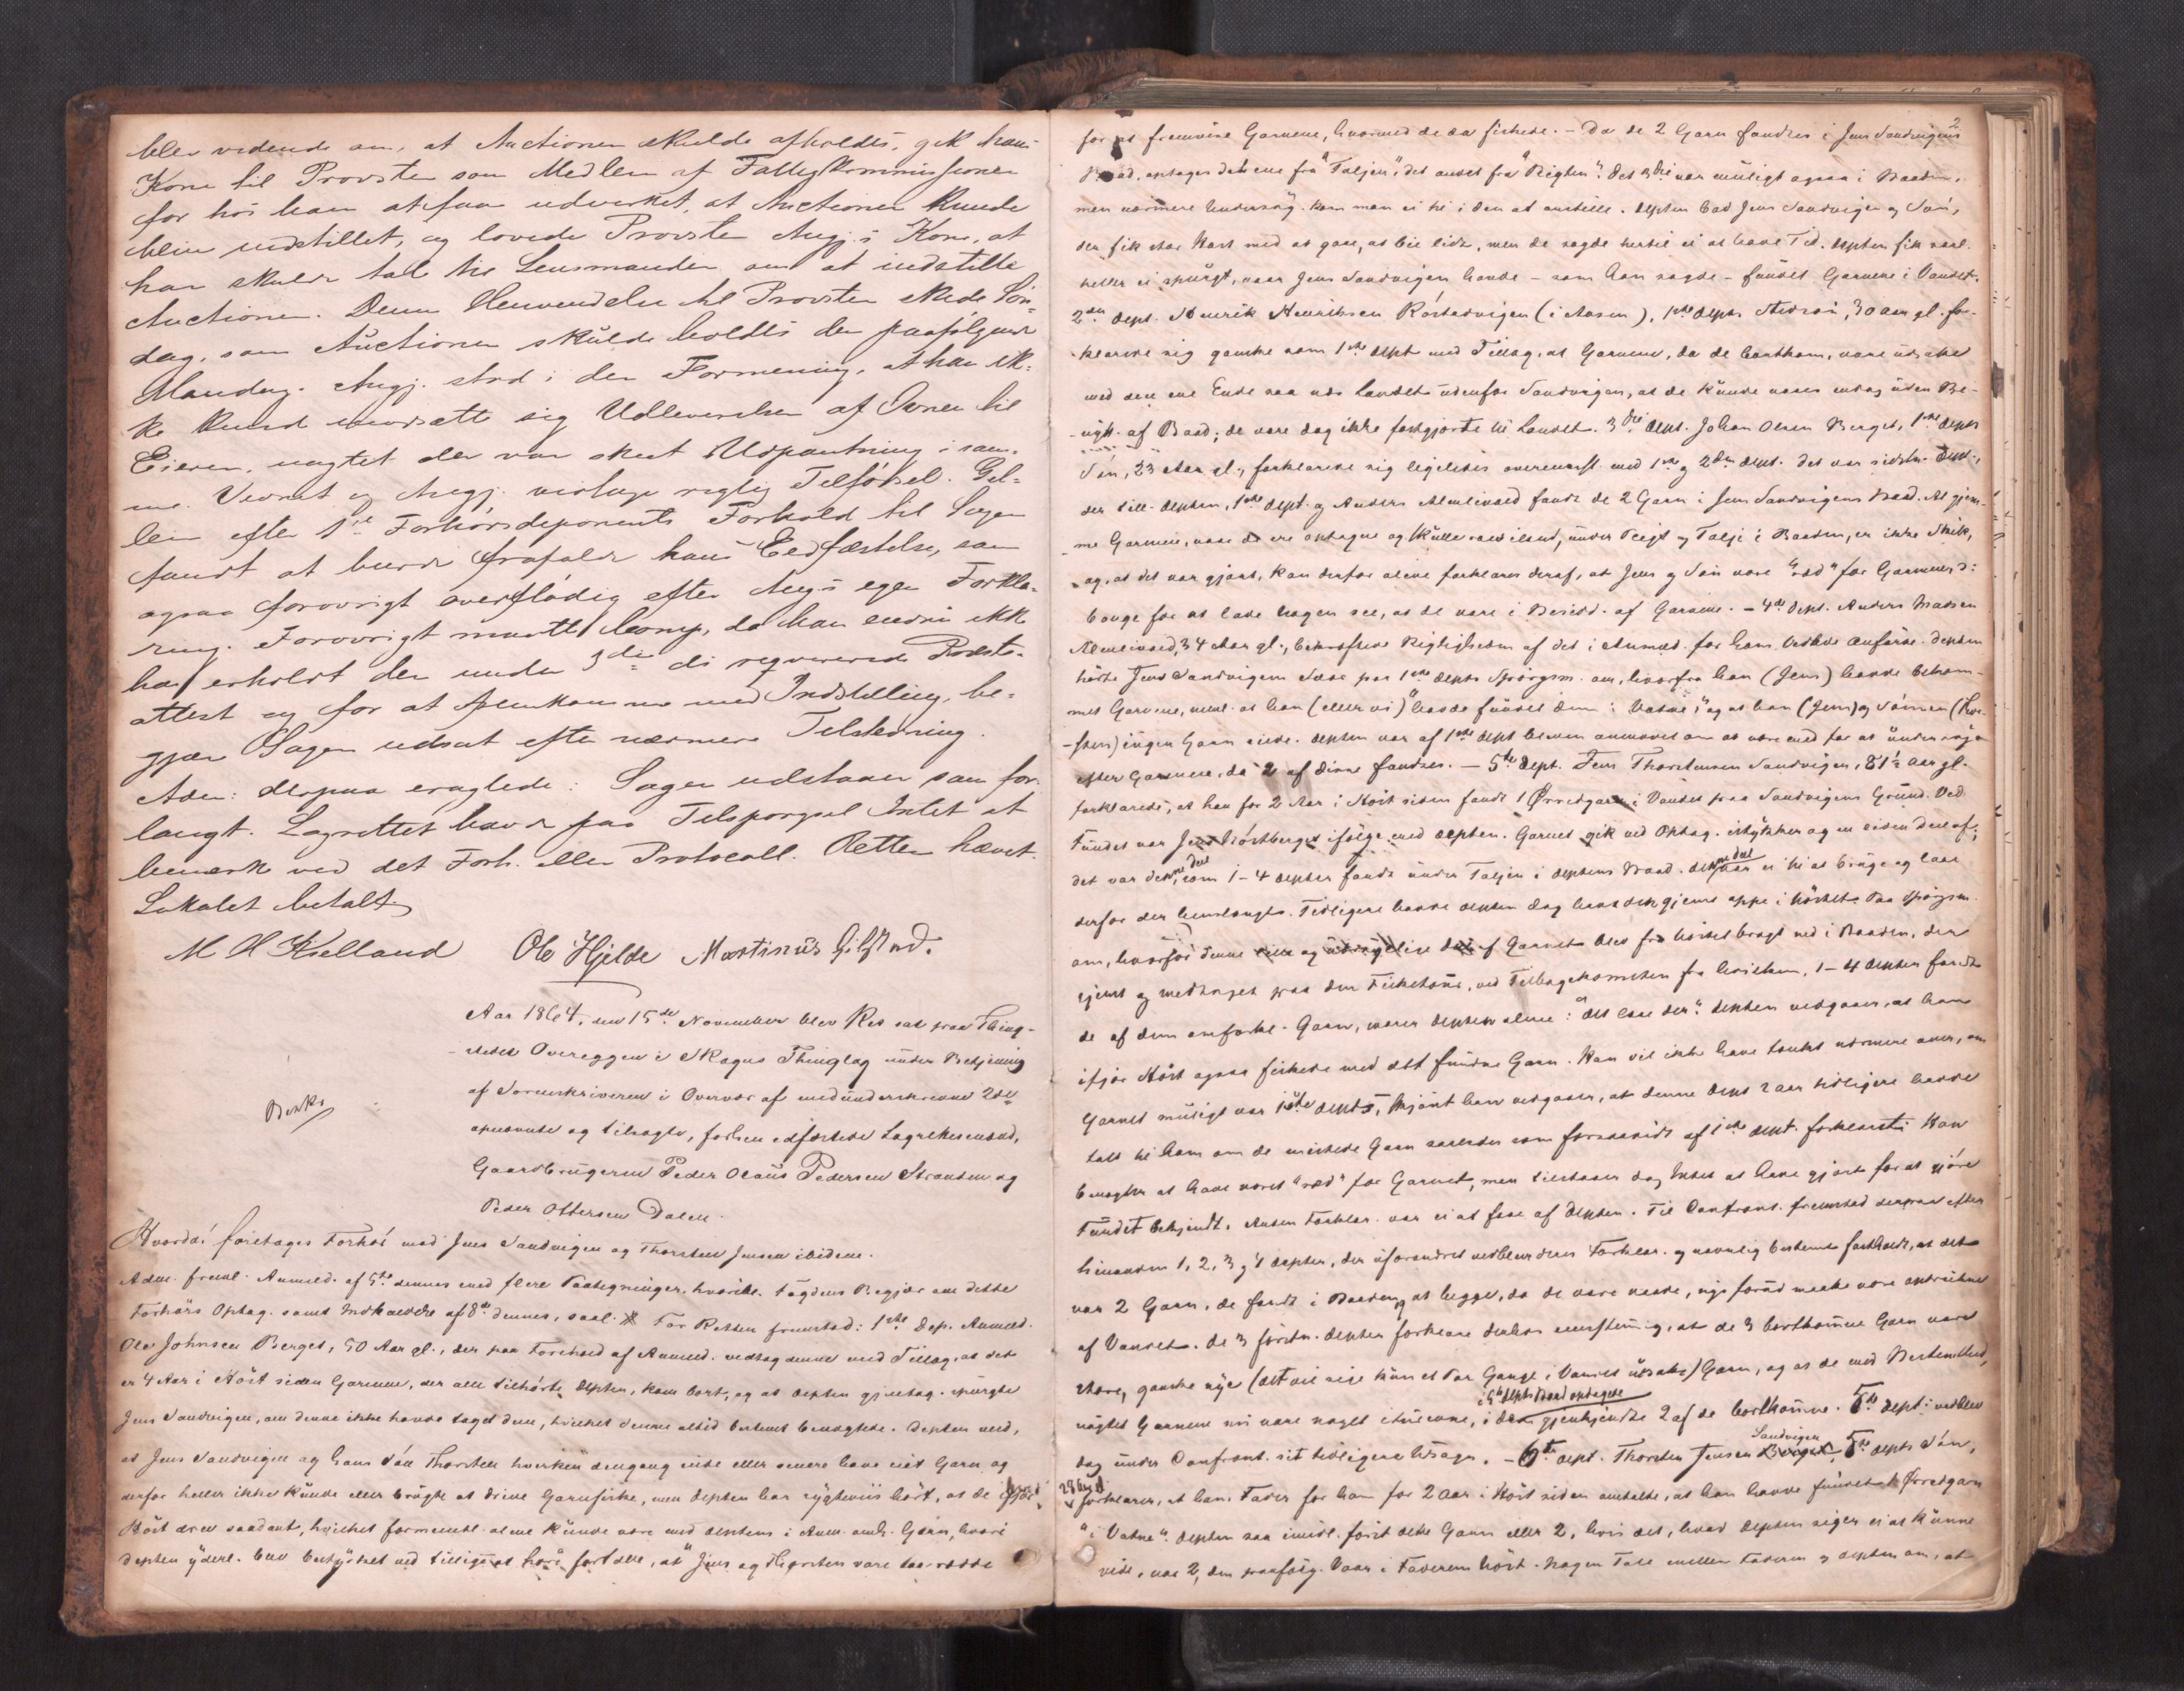 blev vidende om, at Auctionen skulde afholdes, gik hans
Kone til Provsten som Medlem af Fattigkommissionen
for hos ham at faa udvirket, at Auctionen kunde
blive indstillet, og lovede Provsten Angj.s Kone, at
han skulde tale til Lensmanden om at indstille
Auctionen. Denne Henvendelse til Provsten skede Søn-
dag, som Auctionen skulde holdes den paafølgende
Mandag. Angj. stod i den Formening, at han ik-
ke kunde modsætte sig Udleverelsen af Ovnen til
Eieren, uagtet der var skeet Udpantning i sam-
me. Vedret og Angj. vedtage rigtig Tilførsel. Gel-
lein efter 1ste Forhørsdeponents Forhold til Sagen
fandt at burde frafalde hans Eedfæstelse, som
ogsaa forøvrigt overflødig efter Angj.s egen Forkla-
ring. Forøvrigt maatte Comp., da han endnu ikke
har erholdt den under 3die ds reqvirerede Præste-
attest og for at fremkomme med Indstilling, be-
gjære Sagen udsat efter nærmere Tilstedning.
Adm: derpaa eragtede: Sagen udstaaer som for-
langt. Lagrettet havde paa Tilspørgsel Intet at
bemærke ved det Forh. eller Protocoll. Retten hævet.
Lokalet betalt.
M H Kielland Ole Hjelde Martinus Gilstad.
Aar 1864, den 15de November blev Ret sat paa Thing-
stedet Overeggen i Skogns Thinglag under Betjening
af Sorenskriveren i Overvær af medunderskrevne 2de
opnævnte og tilsagte, forhen edfæstede Lagrettesmænd,
Gaardbrugerne Peder Olaus Pedersen Stranden og
Peder Ottersen Dalen.
Hvorda: foretages Forhør mod Jens Sandvigen og Thorsten Jensen ibidem.
Adm. freml. Anmeld. af 5te dennes med flere Paategninger, hvoribl. Fogdens Begjær om dette
Forhørs Optag. samt Indkaldelse af 8de dennes, saal. For Retten fremstod: 1ste Dep. Anmeld.
Ole Johnsen Berget, 50 Aar gl., der paa Forehold af Anmeld. vedtog denne med Tillæg, at det
er 4 Aar i Høst siden Garnene, der alle tilhørte Depten, kom bort, og at Depten gjentag. spurgte
Jens Sandvigen, om denne ikke havde taget dem, hvilket denne altid bestemt benægtede. Depten veed,
at Jens Sandvigen og hans Søn Thorsten hverken dengang eiede eller senere have eiet Garn og
derfor heller ikke kunde eller brugte at drive Garnfiske, men Depten har rygteviis hørt, at de ifjor
Høst drev saadant, hvilket formentl. alene kunde være med Deptens i Anm. omh. Garn, hvori
Depten yderl. blev bestyrket ved tilligemed høre fortælle, at Jens og Thorsten vare saa rædde
2
for at fremvise Garnene, hvormed de da fiskede. – Da de 2 Garn fandtes i Jens Sandvigens
Baad, optoges det ene fra "Taljen", det andet fra "Rigten". Det 3die var muligt ogsaa i Baaden,
men nærmere Undersøg. kom man ei til i den at anstille. Depten bad Jens Sandvigen og Søn,
der fik stor Hast med at gaae, at bie lidt, men de sagde hertil ei at have Tid. Depten fik saal.
heller ei spurgt, naar Jens Sandvigen havde – som han sagde – fundet Garnene i Vandet.
2den Dept. Henrik Henriksen Rostadvigen (i Aasen), 1ste Depts Stedsøn, 30 Aar gl. for-
klarede sig ganske som 1ste Dept med Tillæg, at Garnene, da de bortkom, vare udsatte
med den ene Ende saa nær Landet udenfor Sandvigen, at de kunde naaes endog uden Be-
nytt. af Baad; de vare dog ikke fastgjorte til Landet. 3die Dept. Johan Olsen Berget, 1ste Depts
Søn, 23 Aar gl., forklarede sig ligeledes overeensst. med 1ste og 2den Dept. Det var sidstn. Dept.,
der till. Depten, 1ste Dept. og Anders Almlivald fandt de 2 Garn i Jens Sandvigens Baad. At gjem-
me Garnene, naar de ere optagne og skulle roes iland, under Teigt og Talje i Baaden, er ikke Skik,
og, at det var gjort, kan derfor alene forklares deraf, at Jens og Søn vare "ræd" for Garnene ɔ:
bange for at lade Nogen see, at de vare i Besidd. af Garnene. – 4de Dept. Anders Madsen
Almlivald, 34 Aar gl., bekræftede Rigtigheden af det i Anmeld. for hans Vedkde anførte. Depten
hørte Jens Sandvigen svare paa 1ste Depts Spørgsm. om, hvorfra han (Jens) havde bekom-
met Garnene, neml. at han (eller vi) "havde fundet dem i Vatne", og at han (Jens) og Sønnen (Thor-
sten) ingen Garn eiede. Depten var af 1ste Dept bleven anmodet om at være med for at undersøge
efter Garnene, da 2 af disse fandtes. – 5te Dept. Jens Thorstensen Sandvigen, 81½ Aar gl.
forklarede, at han for 2 Aar i Høst siden fandt 1 Ørredgarn i Vandet paa Sandvigens Grund. Ved
Fundet var Jens Nordberget ifølge med Depten. Garnet gik ved Optag. istykker og en liden Deel af,
det var denne Deel, som 1–4 Depter fandt under Taljen i Deptens Baad. denne Deel var ei til at bruge og laae
derfor der henslængt. Tidligere havde Depten dog havt den gjemt oppe i Nøstet. Paa Spørgsm.
om, hvorfor denne lille og ubrugelige Deel af Garnet blev fra Nøstet bragt ned i Baaden, der
gjemt og medtaget paa den Fisketour, ved Tilbagekomsten fra hvilken, 1–4 Depten fandt
de af dem omforkl. Garn, svarer Depten alene: "Det laae der". Depten vedgaaer, at han
ifjor Høst ogsaa fiskede med dette fundne Garn. Han vil ikke have tænkt nærmere over, om
Garnet muligt var 1ste Depts, skjønt han vedgaaer, at denne Dept 2 Aar tidligere havde
talt til ham om de mistede Garn saaledes som foranført af 1ste Dept. forklaret. Han
benægter at have været "ræd" for Garnet, men tilstaaer dog Intet at have gjort for at gjøre
Fundet bekjendt. Anden Forklar. var ei at faae af Depten. Til Confront. fremstod derpaa efter
hinanden 1, 2, 3 og 4 Depter, der uforandret vedbleve deres Forklar. og navnlig bestemt fastholdt, at det
var 2 Garn, de fandt i Baaden, og at begge, da de vare vaade, nys forud maatte være optrukne
af Vandet. De 3 førstn. Depter forklare derhos eenstemmig, at de 3 bortkomne Garn vare
store, ganske nye (det vil sige kun et Par Gange i Vandet udsatte) Garn, og at de med Bestemthed,
uagtet Garnene nu vare noget iturevne, i de i 5te Depts Baad optagede gjenkjendte 2 af de bortkomne. 5te Dept. vedblev
dog under Confront. sit tidligere Udsagn. – 6te Dept. Thorsten Jensen Sandvigen, 5te Depts Søn,
28 Aar gl. forklarer, at hans Fader for ham for 2 Aar i Høst siden omtalte, at han havde fundet 1 Ørredgarn
"i Vatne". Depten saa imidl. først dette Garn eller 2, hvis det, hvad Depten siger ei at kunne
vide, var 2, den paafølg. Vaar i Faderens Nøst. Nogen Tale mellem Faderen og Depten om, at